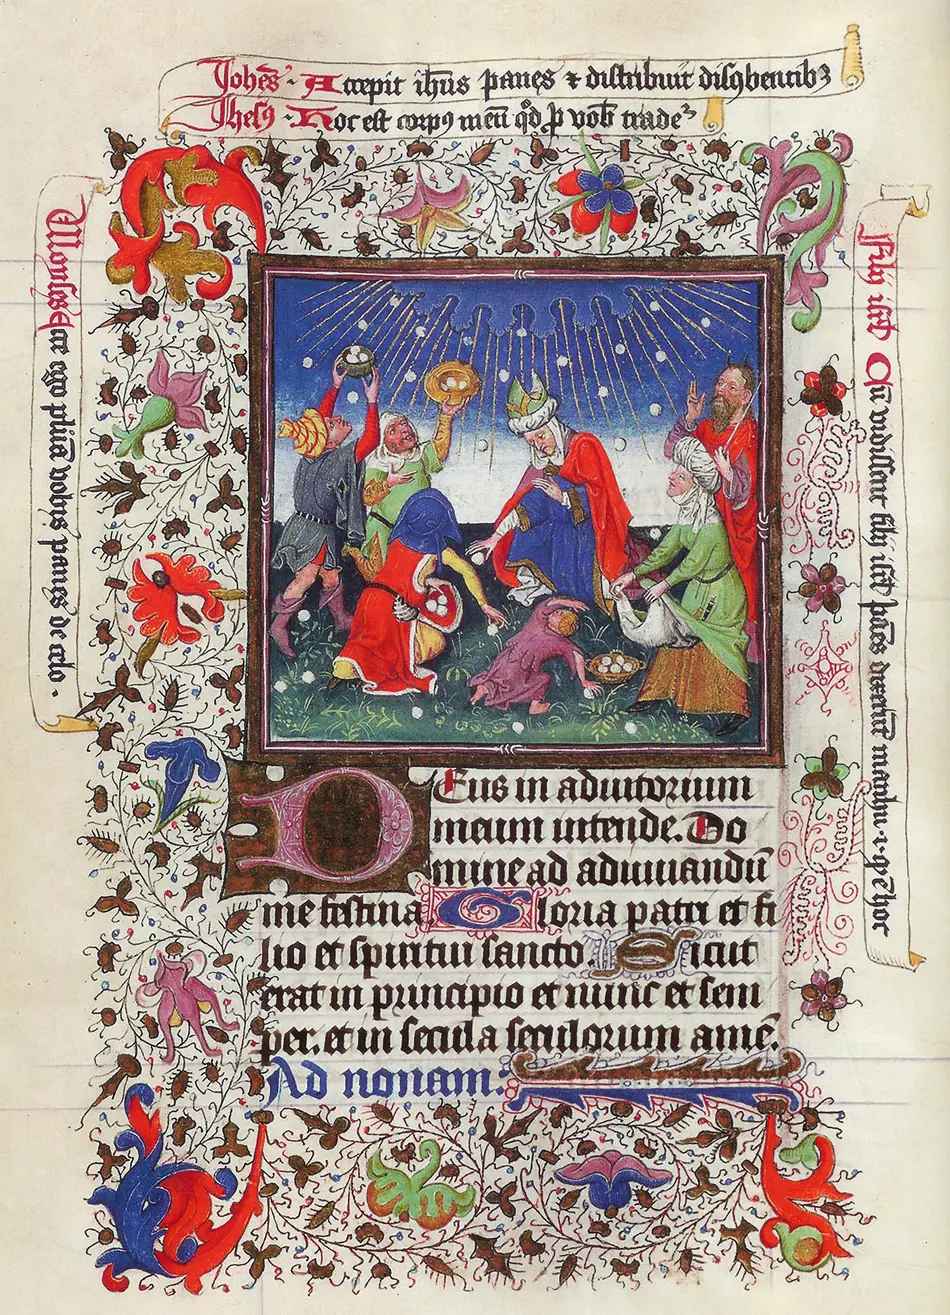 Johēs · Accepit ihūs panes ⁊ distribuit discūbentibꝫ
Jhesꝰ · Hoc est corpꝰ meū qd̄ ꝓ vob̄ tradeꝫ
Moyses Ecce ego pluā vobis panes de celo ·
filij isrl̄ Qd̄ vidissent filij isrl̄ dixerūt manhu · i · qd̄ ē hoc
Deus in adiutorium
meum intende. Do
mine ad adiuuandū
me festina Gloria patri et fi
lio et spiritui sancto. Sicut
erat in principio et nunc et sem
per. et in secula seculorum amē.
Ad nonam.